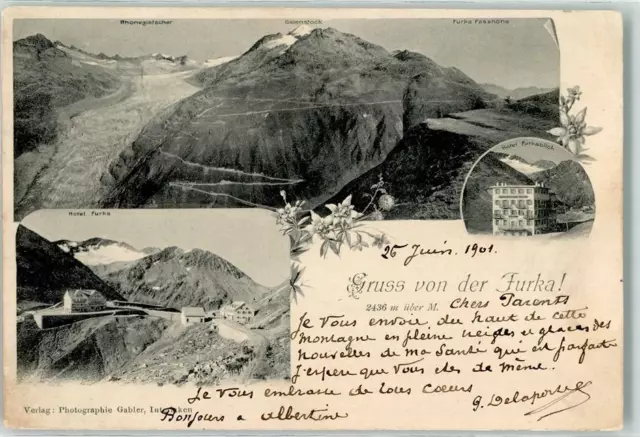 Rhonegletscher Galenstock Furka Passhöhe
Hotel Furkablick
Hotel Furka
25 Juin. 1901.
Gruss von der Furka!
2436 m über M.
Chers Parents
Je Vous envoie, du haut de cette
montagne en pleine neiges et glaces des
nouvelles de ma Santé qui est parfaite
J'espère que Vous etes de même.
Je Vous embrasse de tous coeurs
G. Delaporte
Bonjours a Albertine
Verlag: Photographie Gabler, Interlaken